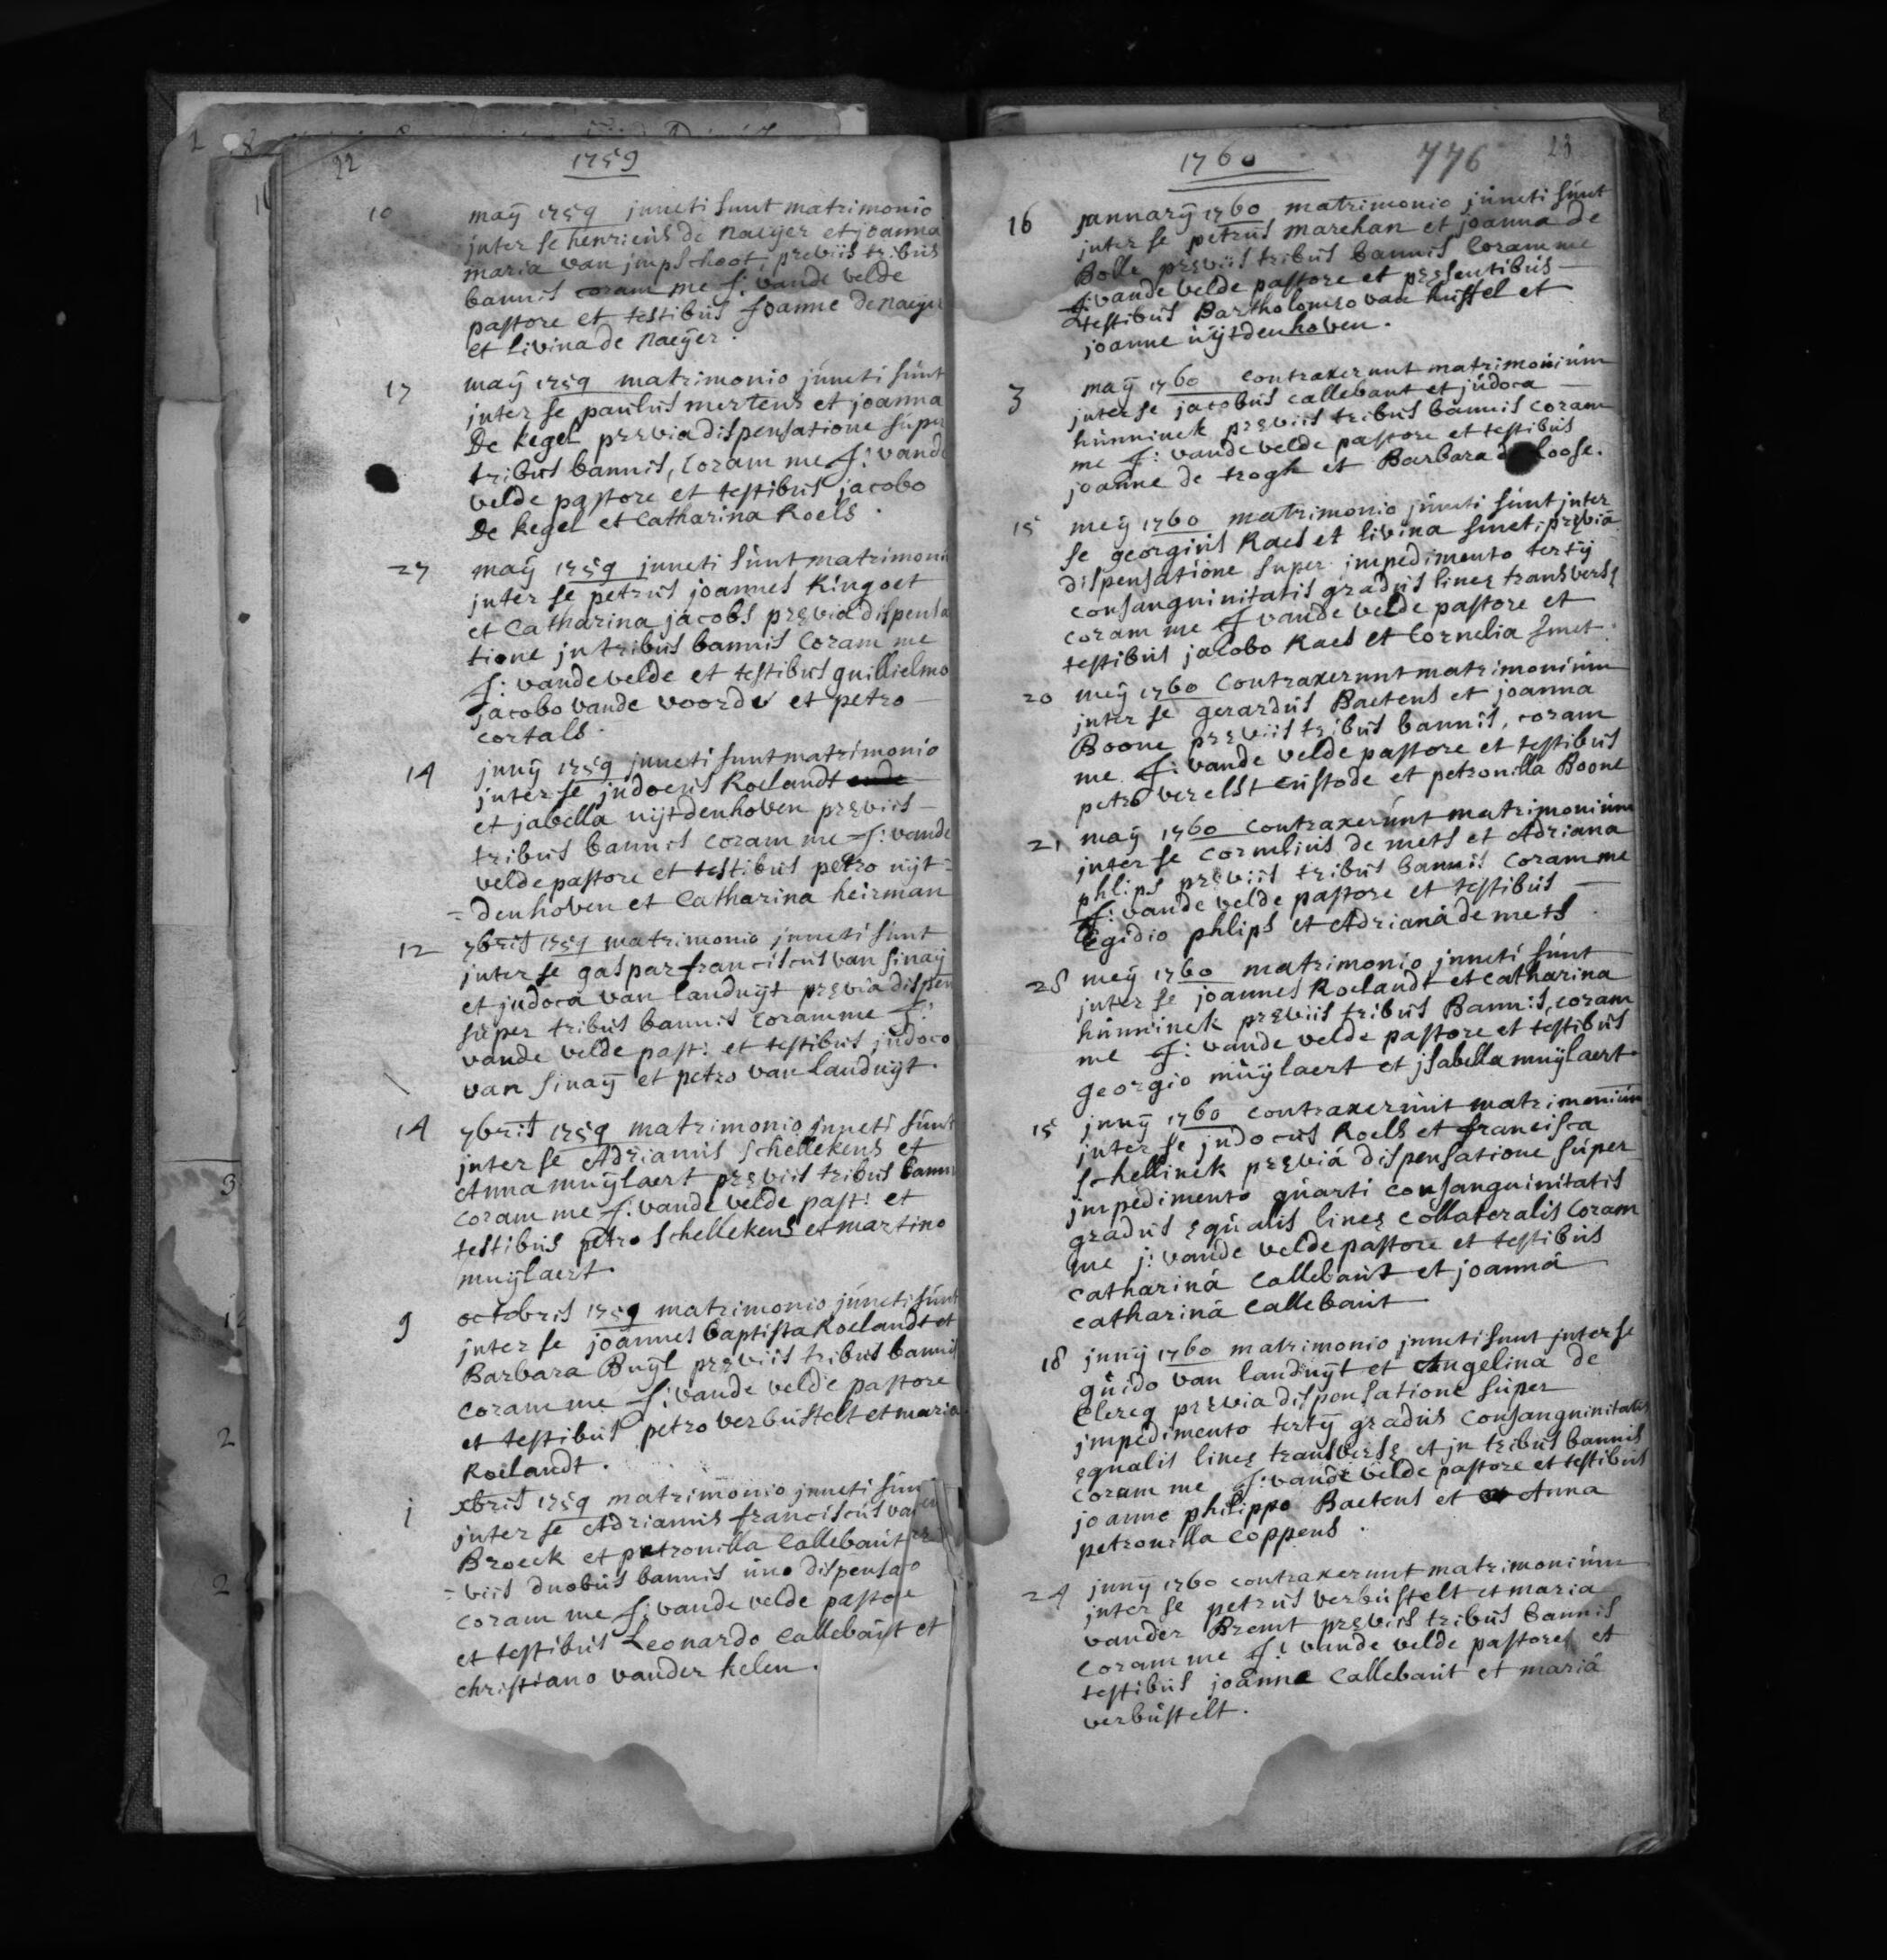 22
1759
10 maÿ 1759 juncti sunt matrimonio
inter se henricus de naeyer et joanna
maria van jmpschoot, previis tribus
bannis coram me J: vande velde
pastore et testibus Joanne de naeyer
et livina de Naeÿer.
17 maÿ 1759 matrimonio juncti sunt
inter se paulus mertens et joanna
De kegel prævia dispensatione super
tribus bannis, coram me J: vande
velde pastore et testibus jacobo
De kegel et Catharina Roels.
27 maÿ 1759 juncti sunt matrimonio
inter se petrus joannes Ringoet
et Catharina jacobs prævia dispensa
tione in tribus bannis coram me
J: vande velde et testibus guillielmo
jacobo vande voorde et petro
cortals.
14 junÿ 1759 juncti sunt matrimonio
inter se judocus Roelandt
et jabella uÿtdenhoven præviis
tribus bannis coram me J: vande
velde pastore et testibus petro uÿt=
=denhoven et Catharina heirman
12 7bris 1759 matrimonio juncti sunt
inter se gaspar franciscus van sinaÿ
et judoca van landuÿt prævia dispen
super tribus bannis coram me J:
vande velde past: et testibus judoco
van sinaÿ et petro van landuÿt.
14 7bris 1759 matrimonio juncti sunt
inter se Adrianus schellekens et
Anna muÿlaert præviis tribus bannis
coram me J: vande velde past: et
testibus petro schellekens et martino
muÿlaert.
9 octobris 1759 matrimonio juncti sunt
inter se joannes baptista Roelandt et
Barbara Buÿl præviis tribus bannis
coram me J: vande velde pastore
et testibus petro verbustelt et maria
Roelandt.
1 xbris 1759 matrimonio juncti sunt
inter se Adrianus franciscus van
Broeck et petronilla Callebaut
=viis duobus bannis uno dispensato
coram me J: vande velde pastore
et testibus Leonardo Callebaut et
christiano vander kelen.
1760
776
23
16 januarÿ 1760 matrimonio juncti sunt
inter se petrus marchan et joanna de
Bolle præviis tribus bannis coram me
J: vande velde pastore et præsentibus
testibus Bartholomeo van hussel et
joanne uÿtdenhoven.
3 maÿ 1760 contraxerunt matrimonium
inter se jacobus callebaut et judoca
hunninck præviis tribus bannis coram
me J: vande velde pastore et testibus
joanne de trogh et Barbara de loose.
15 meÿ 1760 matrimonio juncti sunt inter
se georgius Raes et livina smet, præviâ
dispensatione super impedimento tertÿ
consanguinitatis gradus lineæ transversæ
coram me J vande velde pastore et
testibus jacobo Raes et Cornelia smet.
20 meÿ 1760 Contraxerunt matrimonium
inter se gerardus Baetens et joanna
Boone præviis tribus bannis, coram
me J: vande velde pastore et testibus
petro verelst custode et petronilla Boone
21 maÿ 1760 contraxerunt matrimonium
inter se cornelius de mets et Adriana
phlips præviis tribus bannis coram me
J: vande velde pastore et testibus
Egidio phlips et Adrianâ de mets.
28 meÿ 1760 matrimonio juncti sunt
inter se joannes Roelandt et catharina
hunninck præviis tribus Bannis, coram
me J: vande velde pastore et testibus
georgio muÿlaert et jsabella muÿlaert.
15 junÿ 1760 contraxerunt matrimonium
inter se judocus Roels et francisca
schellinck præviâ dispensatione super
impedimento quarti consanguinitatis
gradus æqualis lineæ collateralis coram
me j: vande velde pastore et testibus
catharinâ Callebaut et joannâ
catharinâ Callebaut
18 junÿ 1760 matrimonio juncti sunt inter se
guido van landuÿt et Angelina de
Clercq prævia dispensatione super
impedimento tertÿ gradus consanguinitatis
æqualis lineæ transversæ et in tribus bannis
coram me J: vande velde pastore et testibus
joanne philippo Baetens et Anna
petronilla Coppens.
24 junÿ 1760 contraxerunt matrimonium
inter se petrus verbustelt et maria
vander Bremt præviis tribus bannis
coram me J: vande velde pastore et
testibus joanne Callebaut et mariâ
verbustelt.